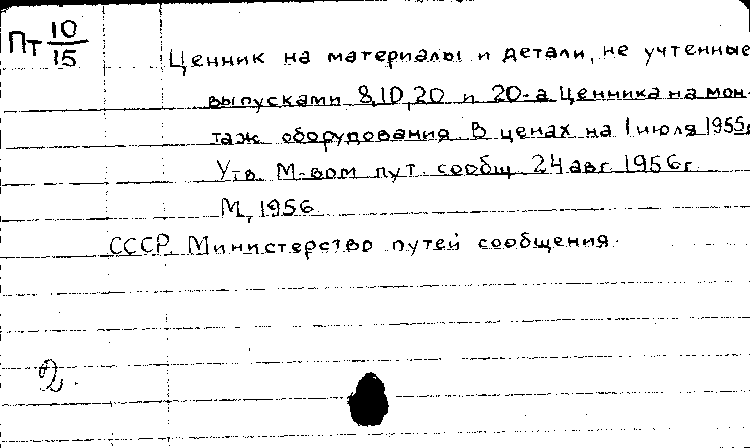 Пт 10/15
Ценник на материалы и детали, не учтенные
выпусками 8, 10, 20 и 20-а Ценника на мон-
таж оборудования. В ценах на 1 июля 1955г.
Утв. М-вом пут. сообщ. 24 авг. 1956г.
М., 1956.
СССР. Министерство путей сообщения.
2.